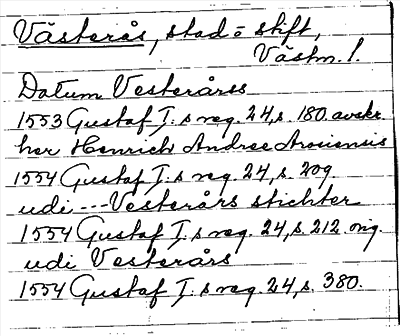 Västerås, stad = stift,
Västm. l.
Datum Vesterårss
1553 Gustaf I:s reg. 24, s. 180. avskr.
her Henrich Andree Arosiensis
1554 Gustaf I:s reg. 24, s. 209
udi --- Vesterårs stichter
1554 Gustaf I:s reg. 24, s. 212. orig.
udi Vesterårs
1554 Gustaf I:s reg. 24, s. 380.